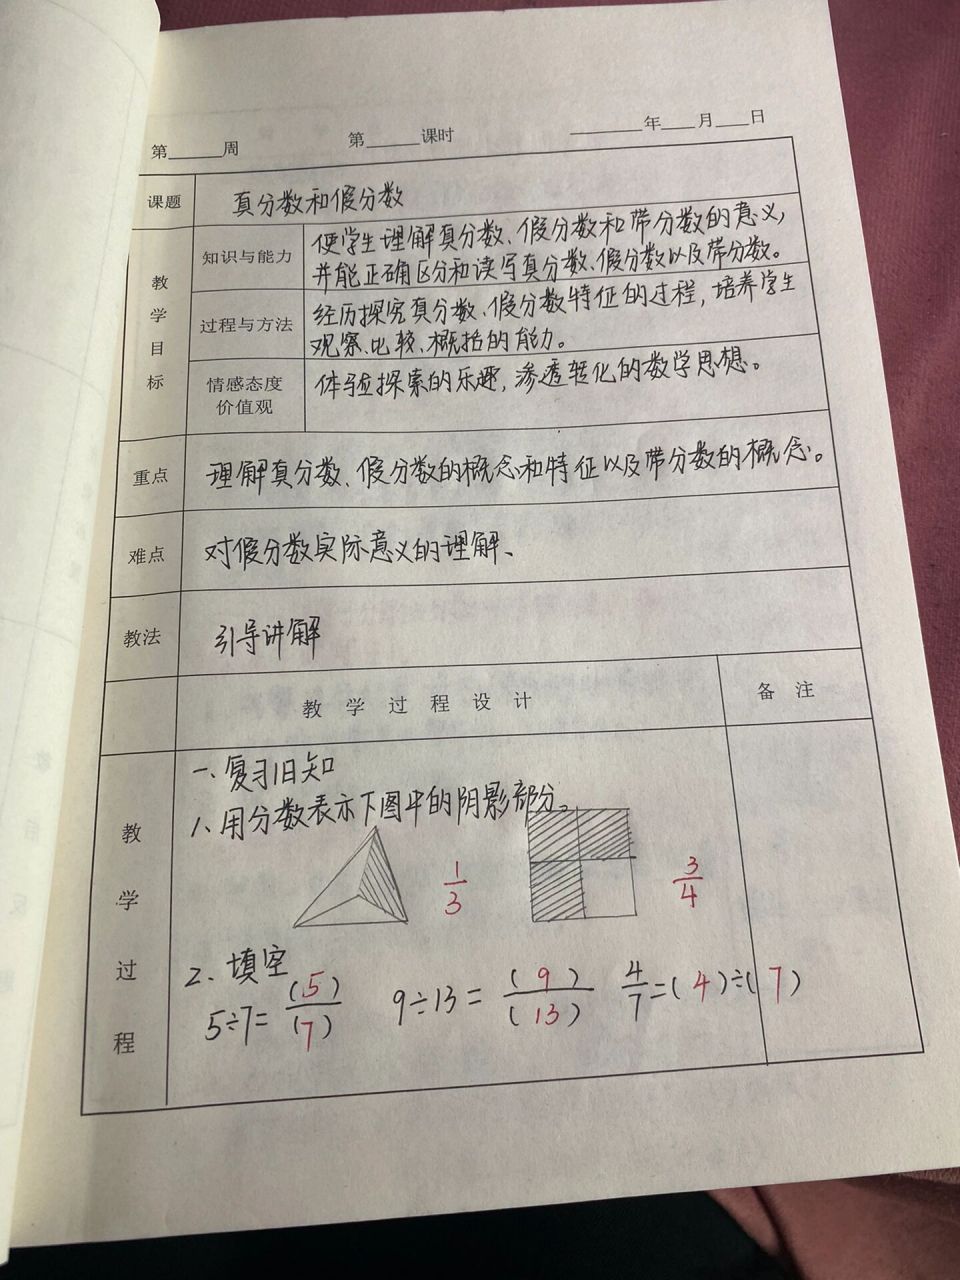 第______周 第______课时 ______年___月___日
课题 真分数和假分数
教学目标
知识与能力 使学生理解真分数、假分数和带分数的意义,
并能正确区分和读写真分数、假分数以及带分数。
过程与方法 经历探究真分数、假分数特征的过程,培养学生
观察、比较、概括的能力。
情感态度价值观 体验探索的乐趣,渗透转化的数学思想。
重点 理解真分数、假分数的概念和特征以及带分数的概念。
难点 对假分数实际意义的理解、
教法 引导讲解
教学过程设计 备注
教学过程
一、复习旧知
1、用分数表示下图中的阴影部分。
1/3 3/4
2、填空
5÷7=(5)/(7) 9÷13=(9)/(13) 4/7=(4)÷(7)